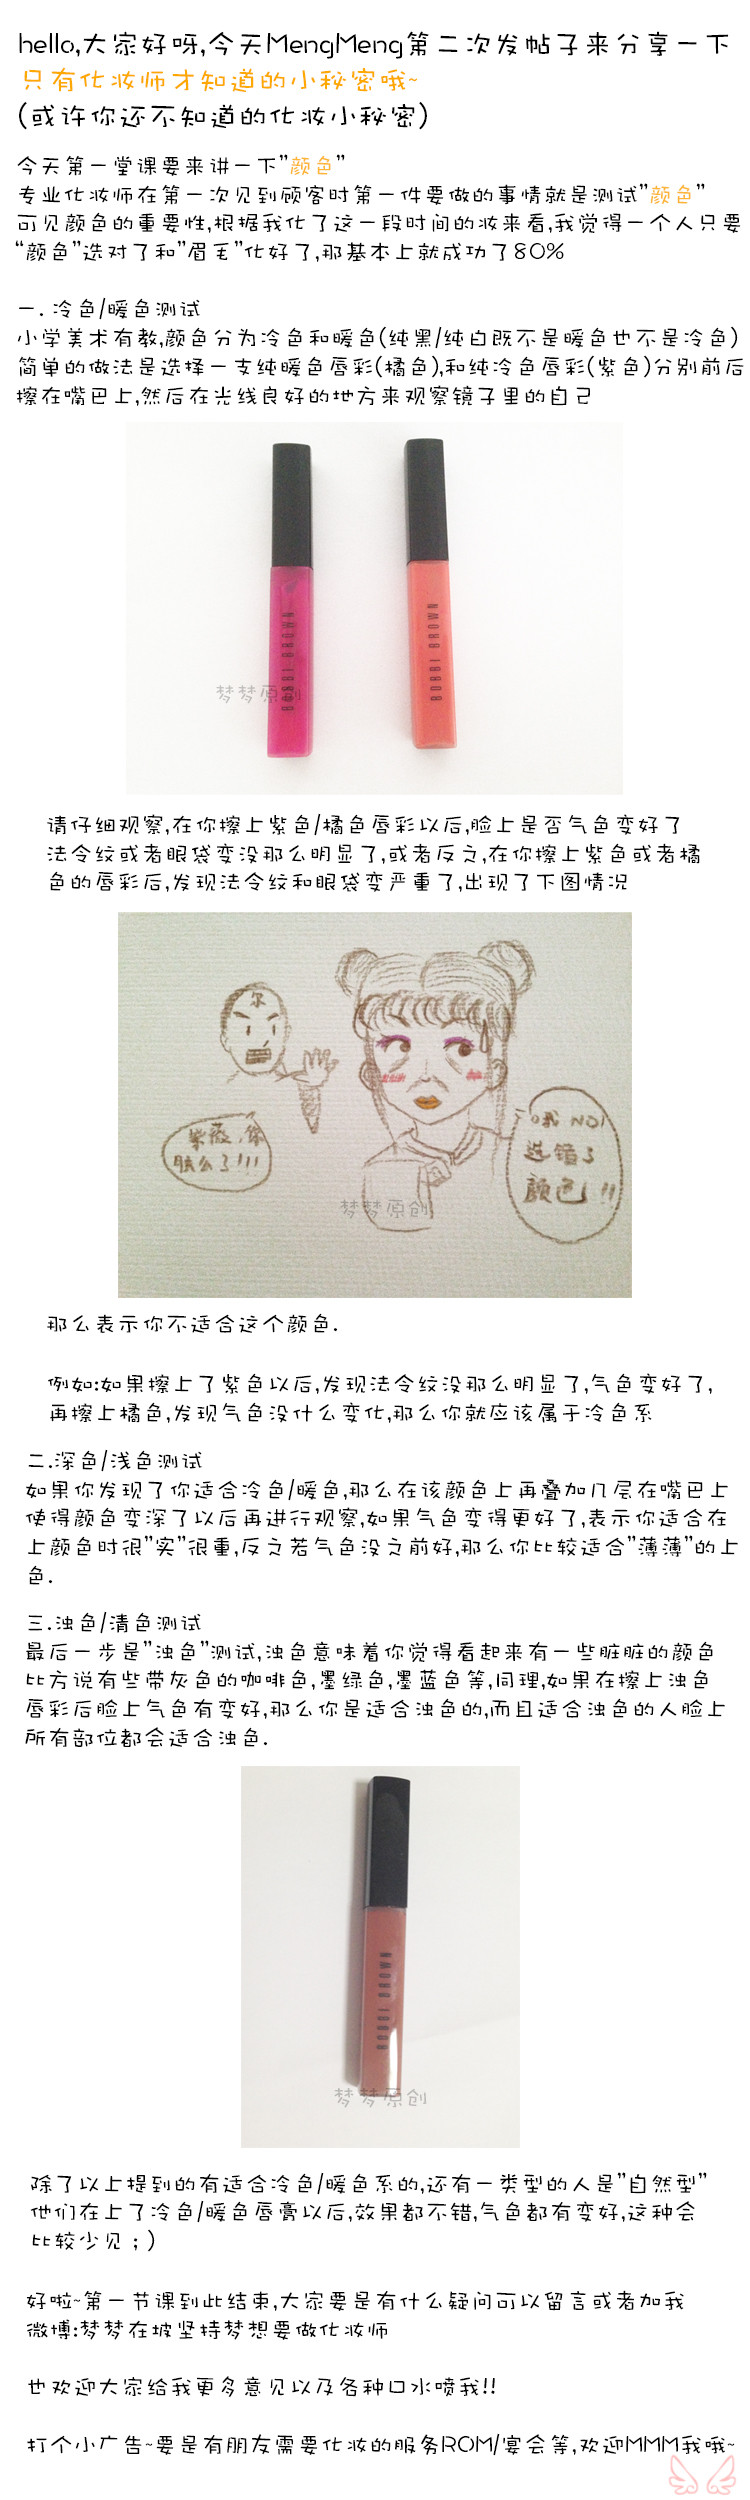 hello,大家好呀,今天MengMeng第二次发帖子来分享一下
只有化妆师才知道的小秘密哦~
(或许你还不知道的化妆小秘密)
今天第一堂课要来讲一下"颜色"
专业化妆师在第一次见到顾客时第一件要做的事情就是测试"颜色"
可见颜色的重要性,根据我化了这一段时间的妆来看,我觉得一个人只要
"颜色"选对了和"眉毛"化好了,那基本上就成功了80%
一. 冷色/暖色测试
小学美术有教,颜色分为冷色和暖色(纯黑/纯白既不是暖色也不是冷色)
简单的做法是选择一支纯暖色唇彩(橘色),和纯冷色唇彩(紫色)分别前后
擦在嘴巴上,然后在光线良好的地方来观察镜子里的自己
BOBBI BROWN
BOBBI BROWN
梦梦原创
请仔细观察,在你擦上紫色/橘色唇彩以后,脸上是否气色变好了
法令纹或者眼袋变没那么明显了,或者反之,在你擦上紫色或者橘
色的唇彩后,发现法令纹和眼袋变严重了,出现了下图情况
尔
紫薇,你
肿么了!!!
哦 NO!
选错了
颜色!!
梦梦原创
那么表示你不适合这个颜色.
例如:如果擦上了紫色以后,发现法令纹没那么明显了,气色变好了,
再擦上橘色,发现气色没什么变化,那么你就应该属于冷色系
二.深色/浅色测试
如果你发现了你适合冷色/暖色,那么在该颜色上再叠加几层在嘴巴上
使得颜色变深了以后再进行观察,如果气色变得更好了,表示你适合在
上颜色时很"实"很重,反之若气色没之前好,那么你比较适合"薄薄"的上
色.
三.浊色/清色测试
最后一步是"浊色"测试,浊色意味着你觉得看起来有一些脏脏的颜色
比方说有些带灰色的咖啡色,墨绿色,墨蓝色等,同理,如果在擦上浊色
唇彩后脸上气色有变好,那么你是适合浊色的,而且适合浊色的人脸上
所有部位都会适合浊色.
BOBBI BROWN
梦梦原创
除了以上提到的有适合冷色/暖色系的,还有一类型的人是"自然型"
他们在上了冷色/暖色唇膏以后,效果都不错,气色都有变好,这种会
比较少见 ; )
好啦~第一节课到此结束,大家要是有什么疑问可以留言或者加我
微博:梦梦在坡坚持梦想要做化妆师
也欢迎大家给我更多意见以及各种口水喷我!!
打个小广告~要是有朋友需要化妆的服务ROM/宴会等,欢迎MMM我哦~